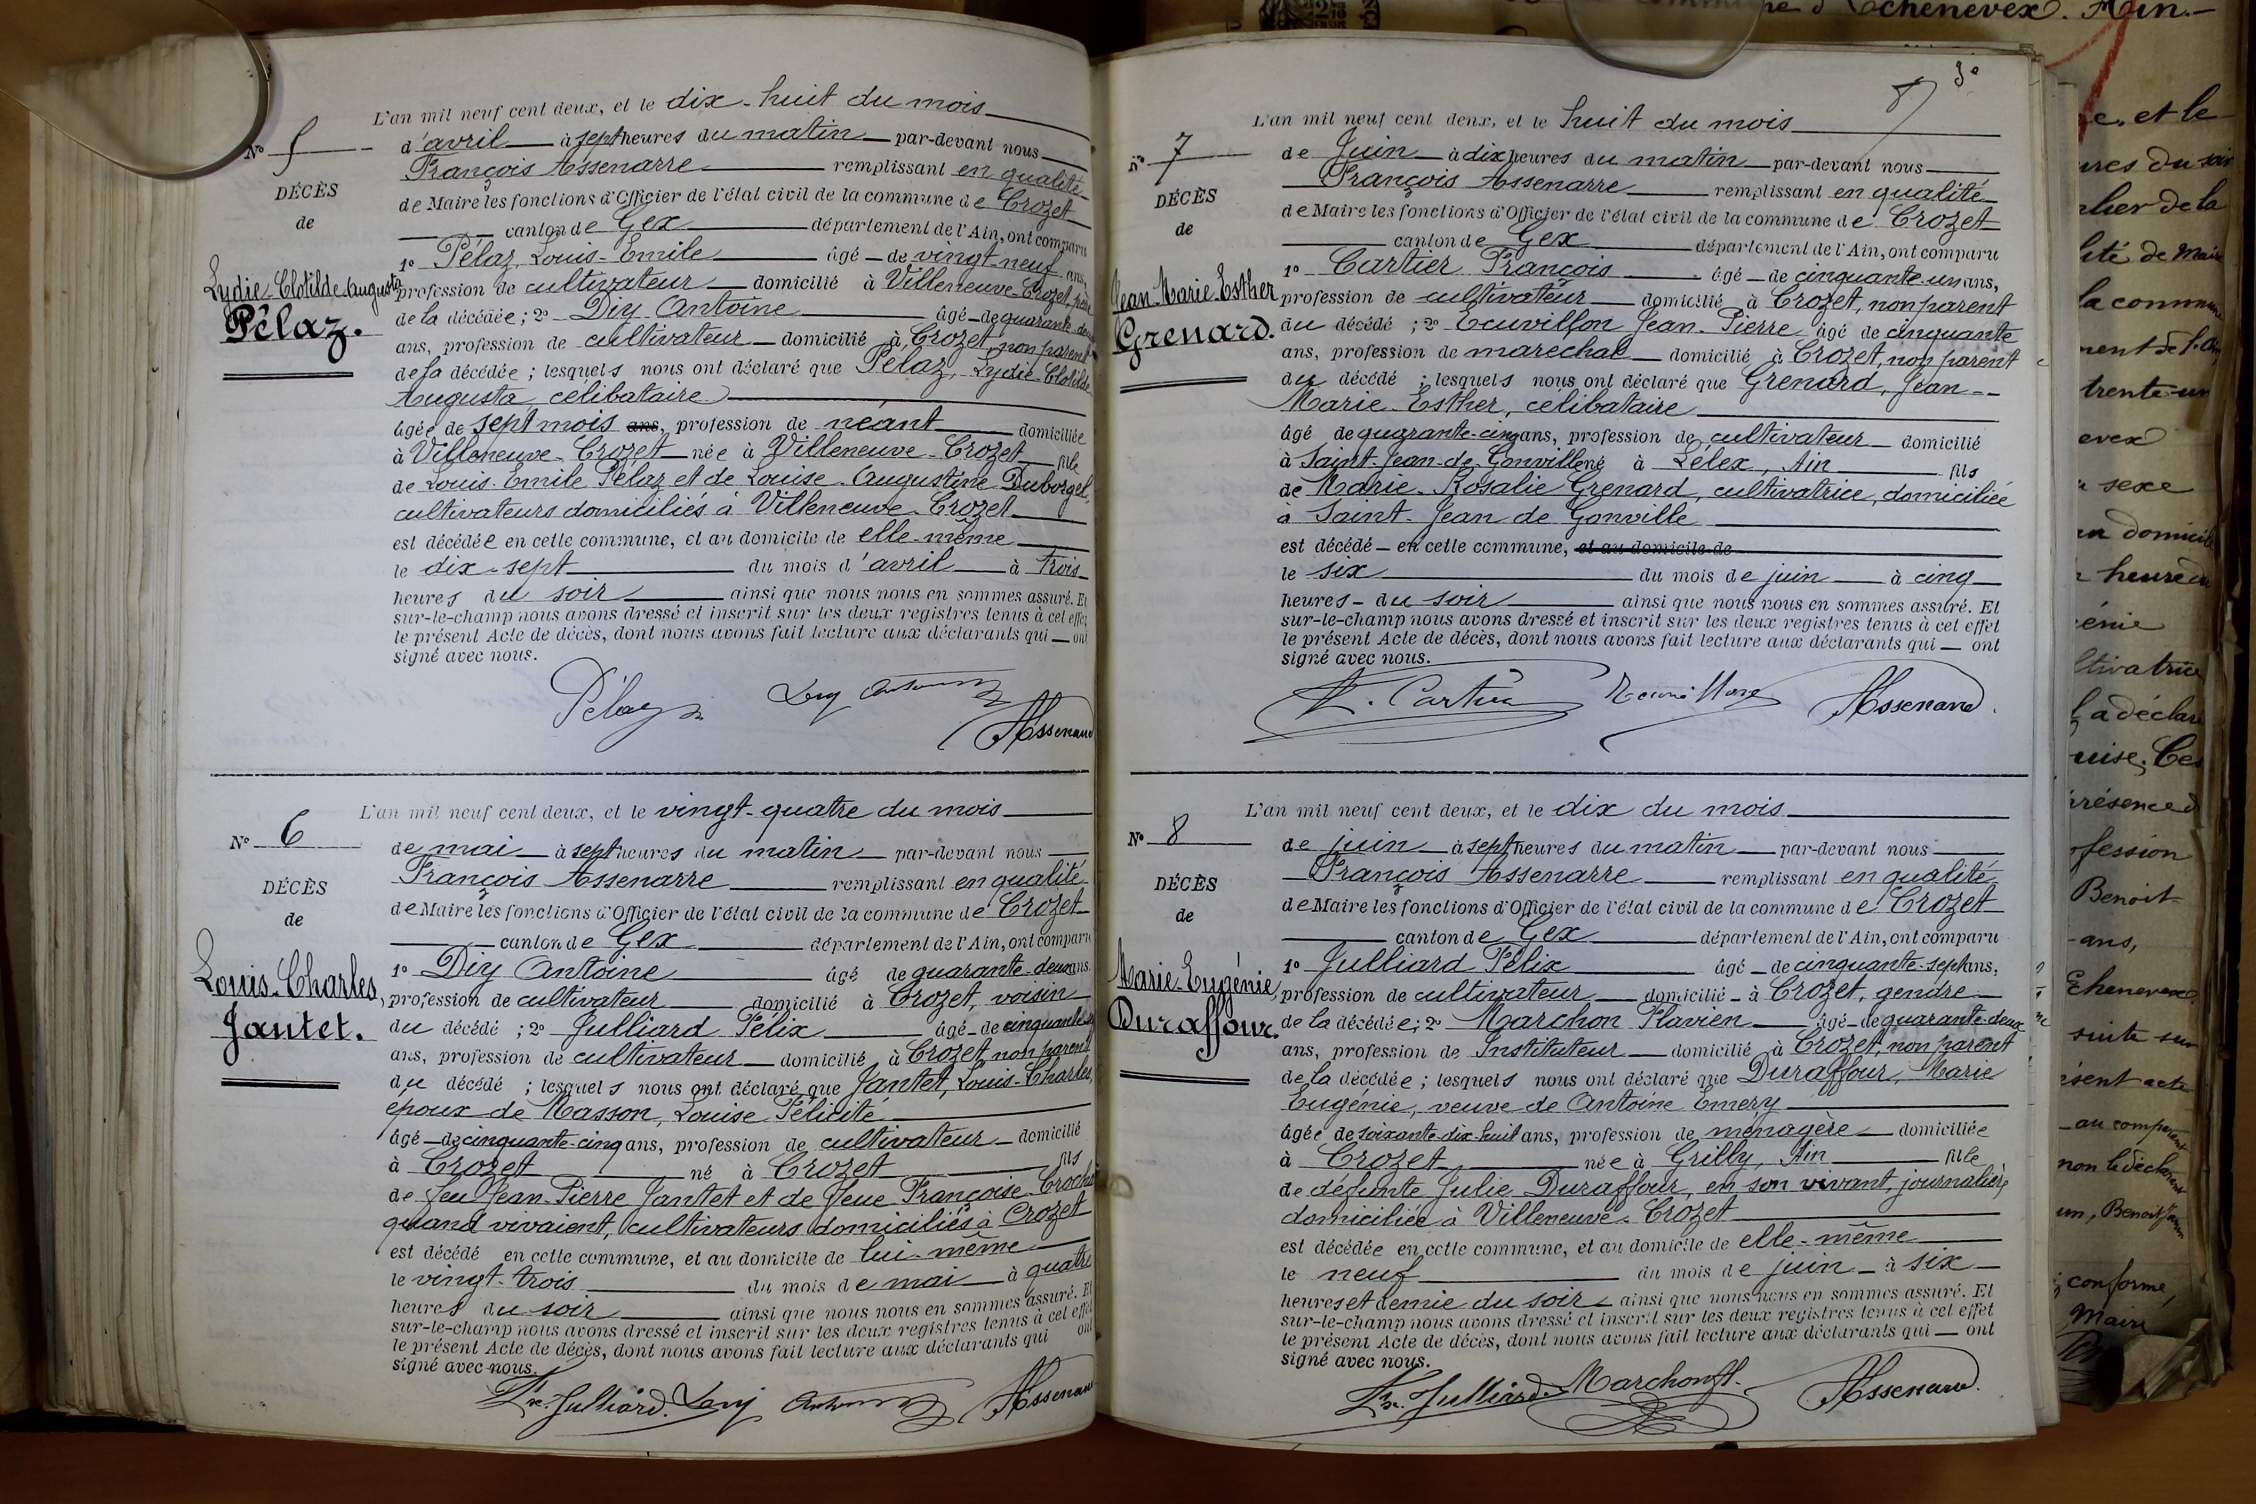 L'an mil neuf cent deux, et le dix-huit du mois
N° 5
d'avril à sept heures du matin par-devant nous
François Assenarre remplissant en qualité
DÉCÈS
de Maire les fonctions d'Officier de l'état civil de la commune de Crozet
de
canton de Gex département de l'Ain, ont comparu
1° Pélaz, Louis-Emile âgé de vingt-neuf ans,
Lydie-Clotilde-Augusta
profession de cultivateur domicilié à Villeneuve-Crozet, père
Pélaz.
de la décédée ; 2° Diy Antoine âgé de quarante-deux
ans, profession de cultivateur domicilié à Crozet, non parent
de la décédée ; lesquels nous ont déclaré que Pélaz, Lydie-Clotilde
Augusta, célibataire
âgée de sept mois ans, profession de néant domiciliée
à Villeneuve-Crozet née à Villeneuve-Crozet fille
de Louis-Emile Pélaz et de Louise-Augustine Duborgel,
cultivateurs domiciliés à Villeneuve-Crozet
est décédée en cette commune, et au domicile de elle-même
le dix-sept du mois d'avril à trois
heures du soir ainsi que nous nous en sommes assuré. Et
sur-le-champ nous avons dressé et inscrit sur les deux registres tenus à cet effet
le présent Acte de décès, dont nous avons fait lecture aux déclarants qui ont
signé avec nous.
Pélaz Assenarre
L'an mil neuf cent deux, et le vingt-quatre du mois
N° 6
de mai à sept heures du matin par-devant nous
François Assenarre remplissant en qualité
DÉCÈS
de Maire les fonctions d'Officier de l'état civil de la commune de Crozet
de
canton de Gex département de l'Ain, ont comparu
1° Diy Antoine âgé de quarante-deux ans,
Louis-Charles,
profession de cultivateur domicilié à Crozet, voisin
Jantet.
du décédé ; 2° Julliard Félix âgé de cinquante
ans, profession de cultivateur domicilié à Crozet, non parent
du décédé ; lesquels nous ont déclaré que Jantet, Louis-Charles,
époux de Masson, Louise Félicité
âgé de cinquante-cinq ans, profession de cultivateur domicilié
à Crozet né à Crozet fils
de feu Jean-Pierre Jantet et de feue Françoise
quand vivaient, cultivateurs domiciliés à Crozet
est décédé en cette commune, et au domicile de lui-même
le vingt-trois du mois de mai à quatre
heures du soir ainsi que nous nous en sommes assuré. Et
sur-le-champ nous avons dressé et inscrit sur les deux registres tenus à cet effet
le présent Acte de décès, dont nous avons fait lecture aux déclarants qui ont
signé avec nous.
Fx. Julliard. Assenarre
L'an mil neuf cent deux, et le huit du mois
N° 7
de Juin à dix heures du matin par-devant nous
François Assenarre remplissant en qualité
DÉCÈS
de Maire les fonctions d'Officier de l'état civil de la commune de Crozet
de
canton de Gex département de l'Ain, ont comparu
1° Cartier François âgé de cinquante-un ans,
Jean-Marie-Esther
profession de cultivateur domicilié à Crozet, non parent
Grenard.
du décédé ; 2° Ecuvillon Jean-Pierre âgé de cinquante
ans, profession de maréchal domicilié à Crozet, non parent
du décédé ; lesquels nous ont déclaré que Grenard, Jean-
Marie-Esther, célibataire
âgé de quarante-cinq ans, profession de cultivateur domicilié
à Saint-Jean-de-Gonville né à Lélex, Ain fils
de Marie-Rosalie Grenard, cultivatrice, domiciliée
à Saint-Jean de Gonville
est décédé en cette commune, et au domicile de
le six du mois de juin à cinq
heures du soir ainsi que nous nous en sommes assuré. Et
sur-le-champ nous avons dressé et inscrit sur les deux registres tenus à cet effet
le présent Acte de décès, dont nous avons fait lecture aux déclarants qui ont
signé avec nous.
F. Cartier Assenarre
L'an mil neuf cent deux, et le dix du mois
N° 8
de juin à sept heures du matin par-devant nous
François Assenarre remplissant en qualité
DÉCÈS
de Maire les fonctions d'Officier de l'état civil de la commune de Crozet
de
canton de Gex département de l'Ain, ont comparu
1° Julliard Félix âgé de cinquante-sept ans,
Marie-Eugénie
profession de cultivateur domicilié à Crozet, gendre
Duraffour.
de la décédée ; 2° Marchon Flavien âgé de quarante-deux
ans, profession de Instituteur domicilié à Crozet, non parent
de la décédée ; lesquels nous ont déclaré que Duraffour, Marie
Eugénie, veuve de Antoine Emery
âgée de soixante-dix-huit ans, profession de ménagère domiciliée
à Crozet née à Grilly, Ain fille
de défunte Julie Duraffour, en son vivant, journalière
domiciliée à Villeneuve-Crozet
est décédée en cette commune, et au domicile de elle-même
le neuf du mois de juin à six
heures et demie du soir ainsi que nous nous en sommes assuré. Et
sur-le-champ nous avons dressé et inscrit sur les deux registres tenus à cet effet
le présent Acte de décès, dont nous avons fait lecture aux déclarants qui ont
signé avec nous.
Fx. Julliard. Marchon Assenarre
Echenevex. Ain.
et le
du soir
de la
de Maire
la commune
trente-un
sexe
domicile
heure
a déclaré
présence
Benoit
ans,
Echenevex
suite
acte
au comparant
non le déclarant
Benoit
conforme,
Maire